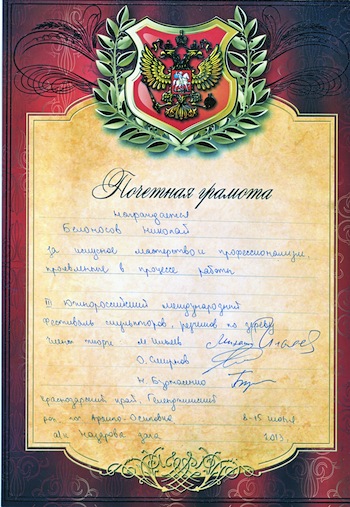 Почетная грамота
Награждается
Белоносов Николай
За искусное мастерство и профессионализм,
проявленные в процессе работы
III Южнороссийский международный
Фестиваль скульпторов, резчиков по дереву
члены жюри М. Ишаев
О. Смирнов
Н. Бурнасенко
Краснодарский край, Геленджикский
рай. пос. Архипо-Осиповка 8-15 июня
2013